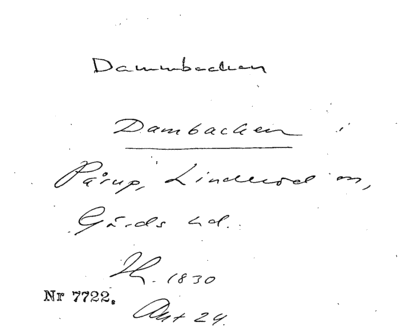 Dammbacken
Dambacken i
Pårup, Linderöd sn,
Gärds hd.
1830
Nr 7722.
Akt 24.